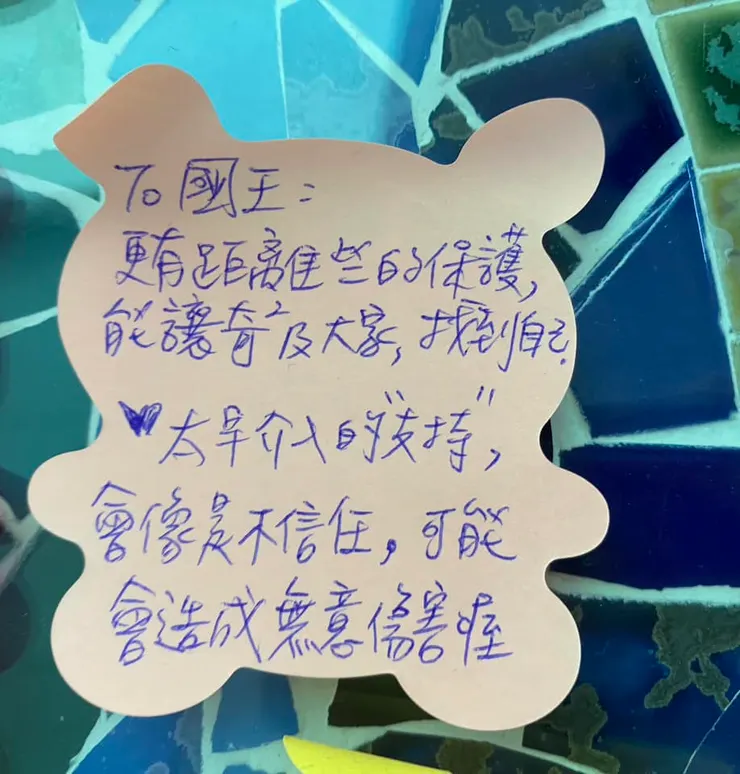 To 國王:
更有距離些的保護,
能讓奇²及大家, 找到自己.
太早介入的"支持",
會像是不信任, 可能
會造成無意傷害喔